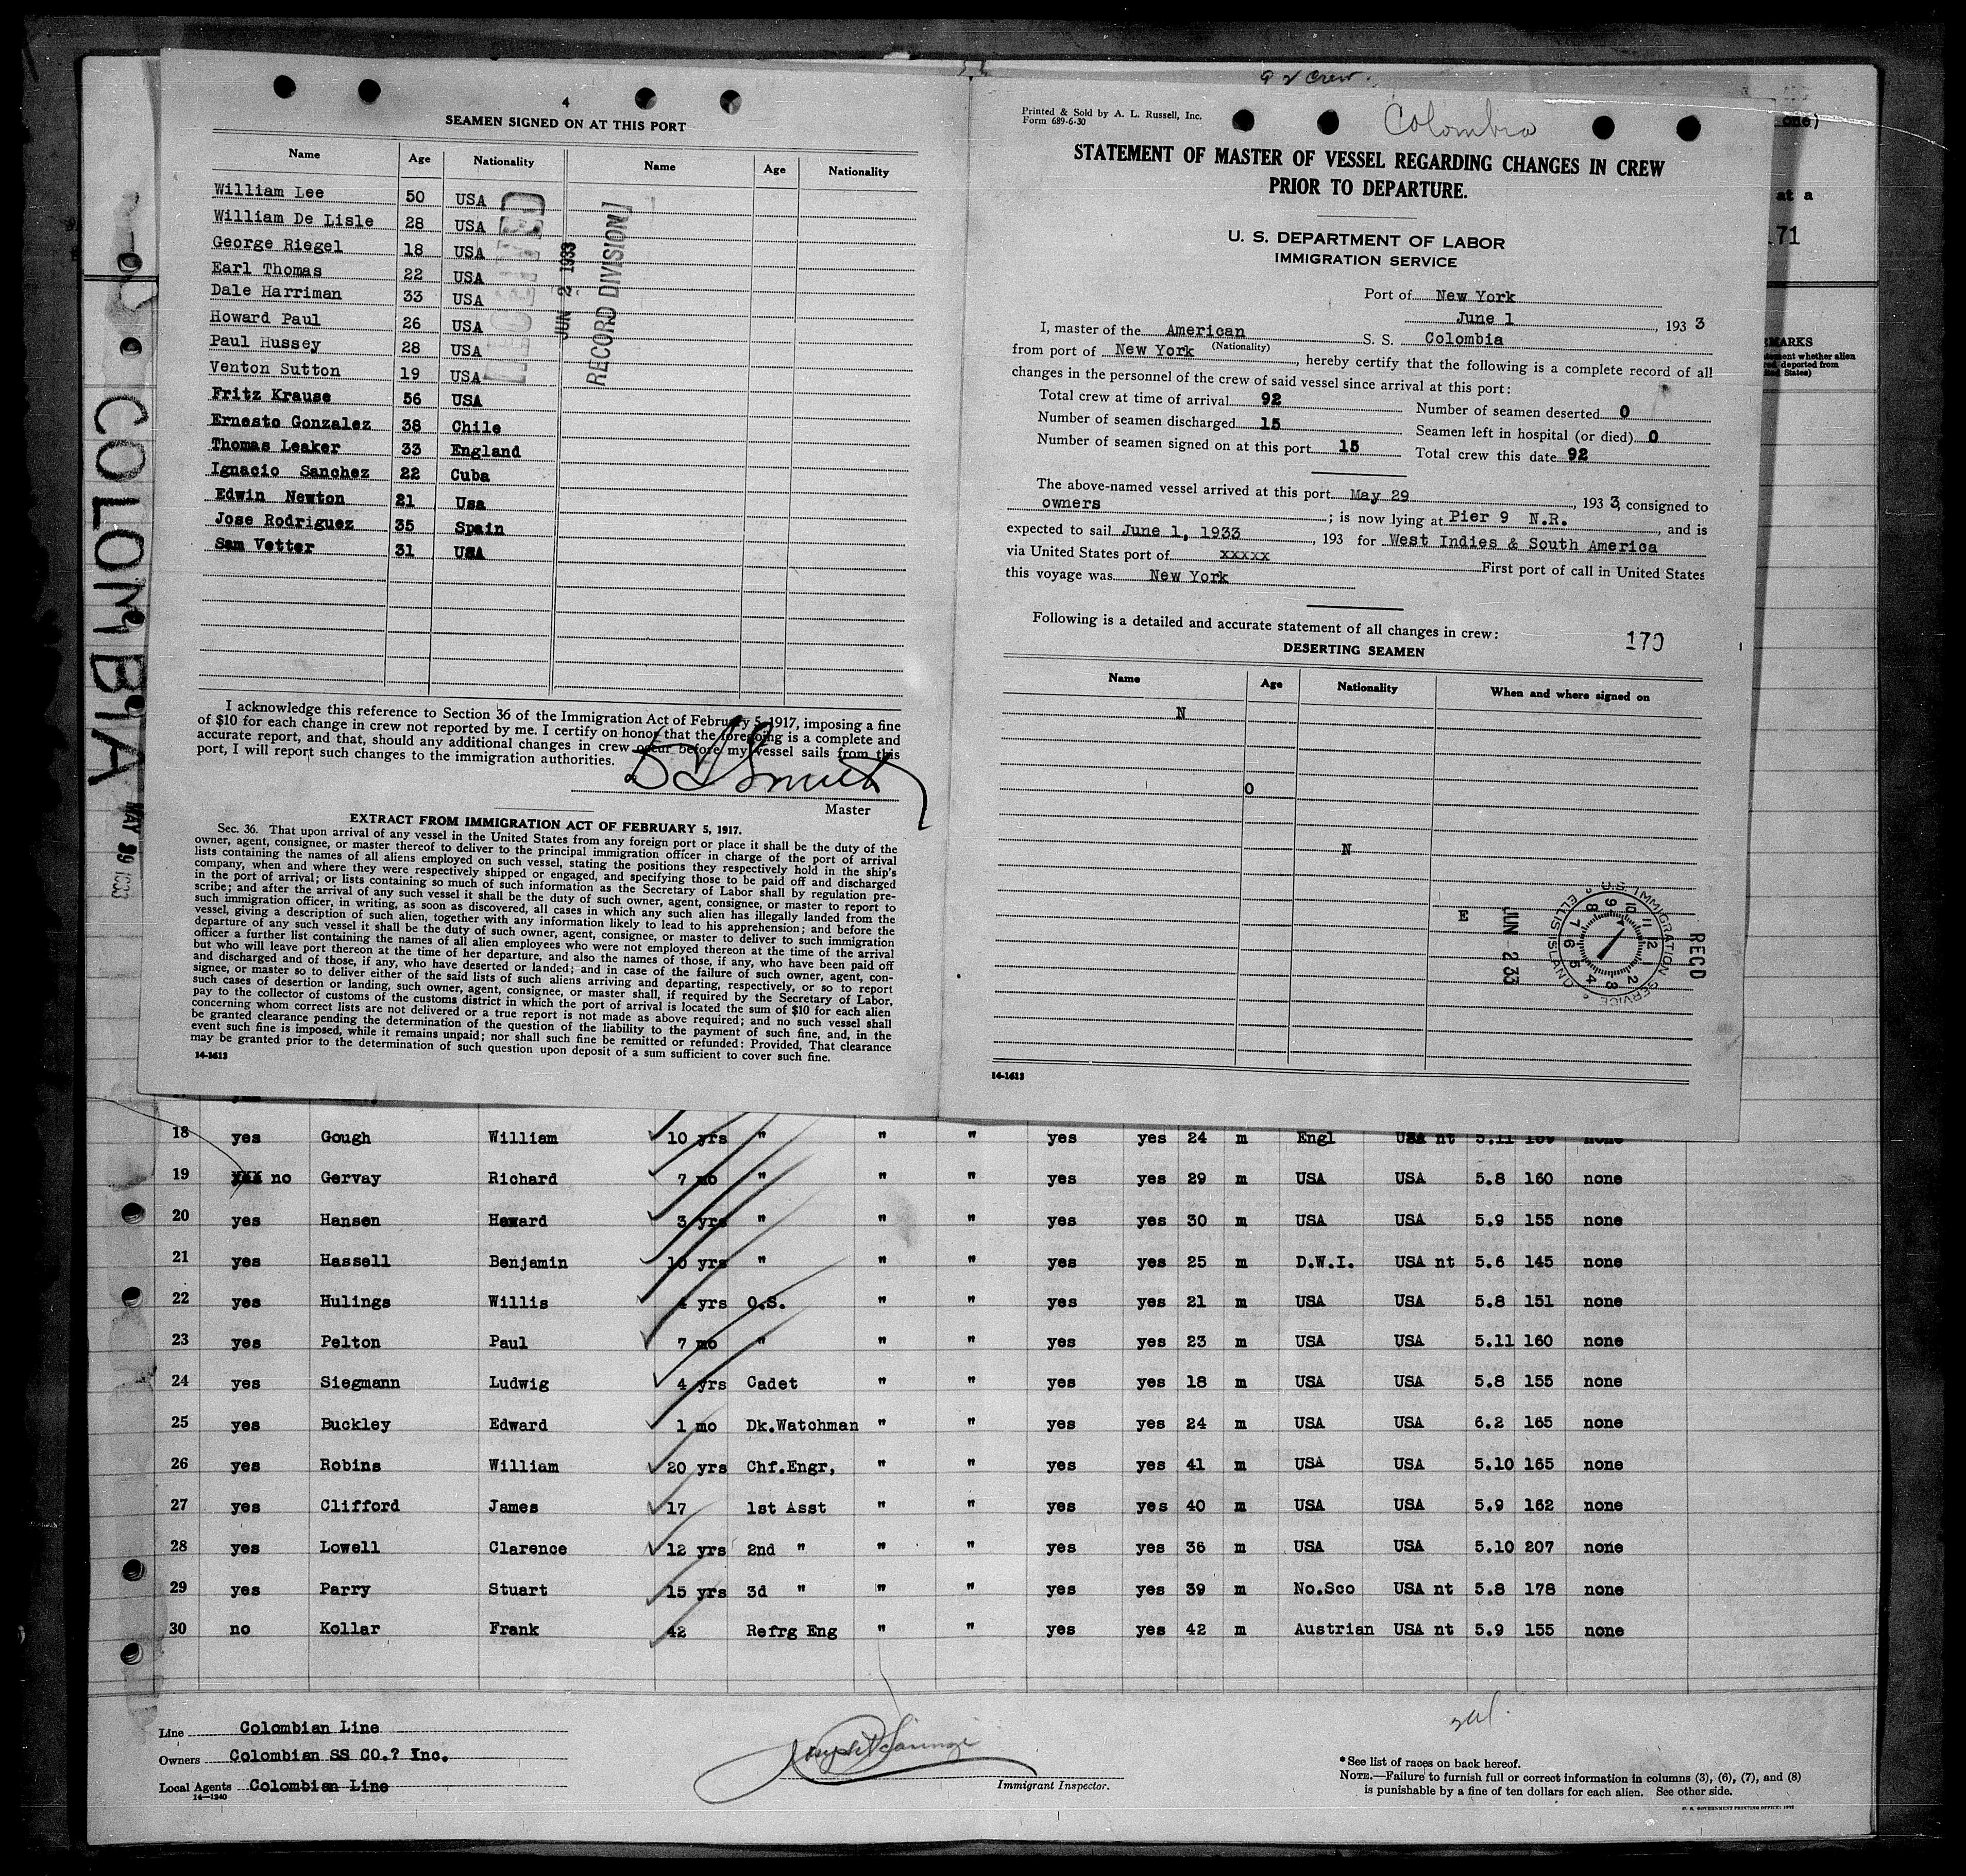 9 2 Crew.
4
SEAMEN SIGNED ON AT THIS PORT
Name Age Nationality Name Age Nationality
William Lee 50 USA
William De Lisle 28 USA
George Riegel 18 USA
Earl Thomas 22 USA
Dale Harriman 33 USA
Howard Paul 26 USA
Paul Hussey 28 USA
Venton Sutton 19 USA
Fritz Krause 56 USA
Ernesto Gonzalez 38 Chile
Thomas Leaker 33 England
Ignacio Sanchez 22 Cuba
Edwin Newton 21 Usa
Jose Rodriguez 35 Spain
Sam Vetter 31 USA
JUN 2 1933
RECORD DIVISION
I acknowledge this reference to Section 36 of the Immigration Act of February 5, 1917, imposing a fine
of $10 for each change in crew not reported by me. I certify on honor that the foregoing is a complete and
accurate report, and that, should any additional changes in crew occur before my vessel sails from this
port, I will report such changes to the immigration authorities.
Master
EXTRACT FROM IMMIGRATION ACT OF FEBRUARY 5, 1917.
Sec. 36. That upon arrival of any vessel in the United States from any foreign port or place it shall be the duty of the
owner, agent, consignee, or master thereof to deliver to the principal immigration officer in charge of the port of arrival
lists containing the names of all aliens employed on such vessel, stating the positions they respectively hold in the ship's
company, when and where they were respectively shipped or engaged, and specifying those to be paid off and discharged
in the port of arrival; or lists containing so much of such information as the Secretary of Labor shall by regulation pre-
scribe; and after the arrival of any such vessel it shall be the duty of such owner, agent, consignee, or master to report to
such immigration officer, in writing, as soon as discovered, all cases in which any such alien has illegally landed from the
vessel, giving a description of such alien, together with any information likely to lead to his apprehension; and before the
departure of any such vessel it shall be the duty of such owner, agent, consignee, or master to deliver to such immigration
officer a further list containing the names of all alien employees who were not employed thereon at the time of the arrival
but who will leave port thereon at the time of her departure, and also the names of those, if any, who have been paid off
and discharged and of those, if any, who have deserted or landed; and in case of the failure of such owner, agent, con-
signee, or master so to deliver either of the said lists of such aliens arriving and departing, respectively, or so to report
such cases of desertion or landing, such owner, agent, consignee, or master shall, if required by the Secretary of Labor,
pay to the collector of customs of the customs district in which the port of arrival is located the sum of $10 for each alien
concerning whom correct lists are not delivered or a true report is not made as above required; and no such vessel shall
be granted clearance pending the determination of the question of the liability to the payment of such fine, and, in the
event such fine is imposed, while it remains unpaid; nor shall such fine be remitted or refunded: Provided, That clearance
may be granted prior to the determination of such question upon deposit of a sum sufficient to cover such fine.
14-1613
Printed & Sold by A. L. Russell, Inc.
Form 689-6-30
Colombia
STATEMENT OF MASTER OF VESSEL REGARDING CHANGES IN CREW
PRIOR TO DEPARTURE.
U. S. DEPARTMENT OF LABOR
IMMIGRATION SERVICE
Port of New York
June 1, 193 3
I, master of the American S. S. Colombia
(Nationality)
from port of New York, hereby certify that the following is a complete record of all
changes in the personnel of the crew of said vessel since arrival at this port:
Total crew at time of arrival 92 Number of seamen deserted 0
Number of seamen discharged 15 Seamen left in hospital (or died) 0
Number of seamen signed on at this port 15 Total crew this date 92
The above-named vessel arrived at this port May 29, 193 3, consigned to
owners; is now lying at Pier 9 N.R., and is
expected to sail June 1, 1933, 193 for West Indies & South America
via United States port of xxxxx First port of call in United States
this voyage was New York
Following is a detailed and accurate statement of all changes in crew: 170
DESERTING SEAMEN
Name Age Nationality When and where signed on
N
O
N
E
JUN -2 33
U.S. IMMIGRATION SERVICE ELLIS ISLAND
12 1 2 3 4 5 6 7 8 9 10 11
RECD
14-1613
one)
at a
71
EMARKS
COLOMBIA
MAY 29 1933
18 yes Gough William 10 yrs " " " yes yes 24 m Engl USA nt 5.11 none
19 xxx no Gervay Richard 7 mo " " " yes yes 29 m USA USA 5.8 160 none
20 yes Hansen Howard 3 yrs " " " yes yes 30 m USA USA 5.9 155 none
21 yes Hassell Benjamin 10 yrs " " " yes yes 25 m D.W.I. USA nt 5.6 145 none
22 yes Hulings Willis 4 yrs O.S. " " yes yes 21 m USA USA 5.8 151 none
23 yes Pelton Paul 7 mo " " " yes yes 23 m USA USA 5.11 160 none
24 yes Siegmann Ludwig 4 yrs Cadet " " yes yes 18 m USA USA 5.8 155 none
25 yes Buckley Edward 1 mo Dk.Watchman " " yes yes 24 m USA USA 6.2 165 none
26 yes Robins William 20 yrs Chf.Engr, " " yes yes 41 m USA USA 5.10 165 none
27 yes Clifford James 17 1st Asst " " yes yes 40 m USA USA 5.9 162 none
28 yes Lowell Clarence 12 yrs 2nd " " " yes yes 36 m USA USA 5.10 207 none
29 yes Parry Stuart 15 yrs 3d " " " yes yes 39 m No.Sco USA nt 5.8 178 none
30 no Kollar Frank 42 Refrg Eng " " yes yes 42 m Austrian USA nt 5.9 155 none
Line Colombian Line
Owners Colombian SS CO.? Inc.
Local Agents Colombian Line
14-1240
Immigrant Inspector.
*See list of races on back hereof.
NOTE.—Failure to furnish full or correct information in columns (3), (6), (7), and (8)
is punishable by a fine of ten dollars for each alien. See other side.